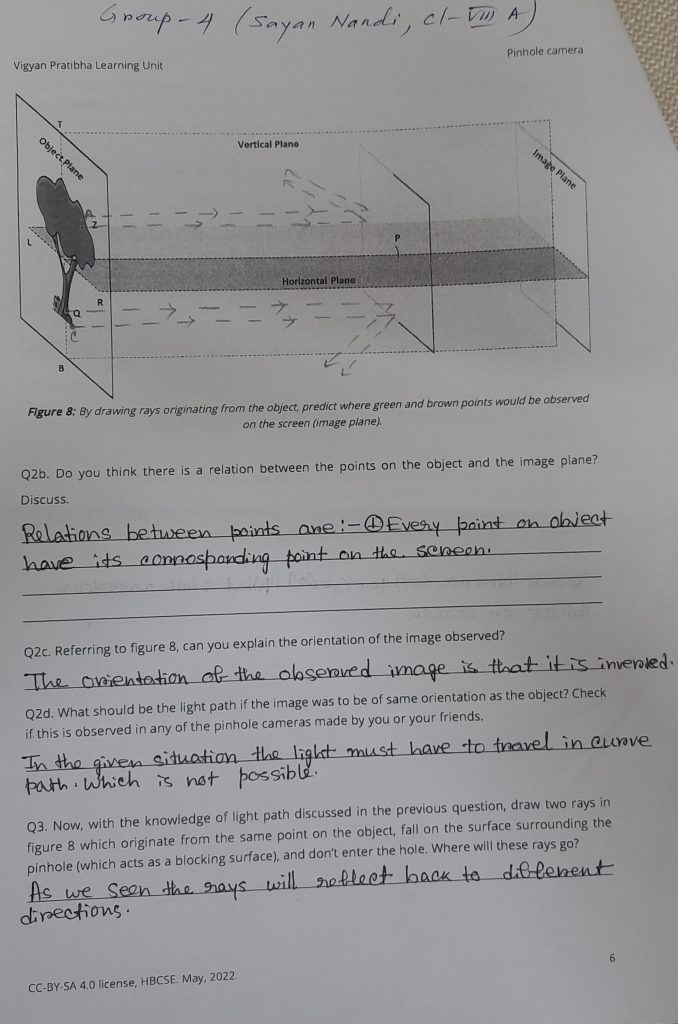 Group - 4 (Sayan Nandi, cl- VIII A)
Pinhole camera
Vigyan Pratibha Learning Unit
T
Object Plane
Vertical Plane
Image Plane
Z
L
P
Horizontal Plane
R
Q
C
B
Figure 8: By drawing rays originating from the object, predict where green and brown points would be observed
on the screen (image plane).
Q2b. Do you think there is a relation between the points on the object and the image plane?
Discuss.
Relations between points are :- ① Every point on object
have its corrosponding point on the screen.
Q2c. Referring to figure 8, can you explain the orientation of the image observed?
The orientation of the observed image is that it is inverted.
Q2d. What should be the light path if the image was to be of same orientation as the object? Check
if this is observed in any of the pinhole cameras made by you or your friends.
In the given situation the light must have to travel in curve
path. Which is not possible.
Q3. Now, with the knowledge of light path discussed in the previous question, draw two rays in
figure 8 which originate from the same point on the object, fall on the surface surrounding the
pinhole (which acts as a blocking surface), and don't enter the hole. Where will these rays go?
As we seen the rays will reflect back to different
directions.
6
CC-BY-SA 4.0 license, HBCSE. May, 2022.